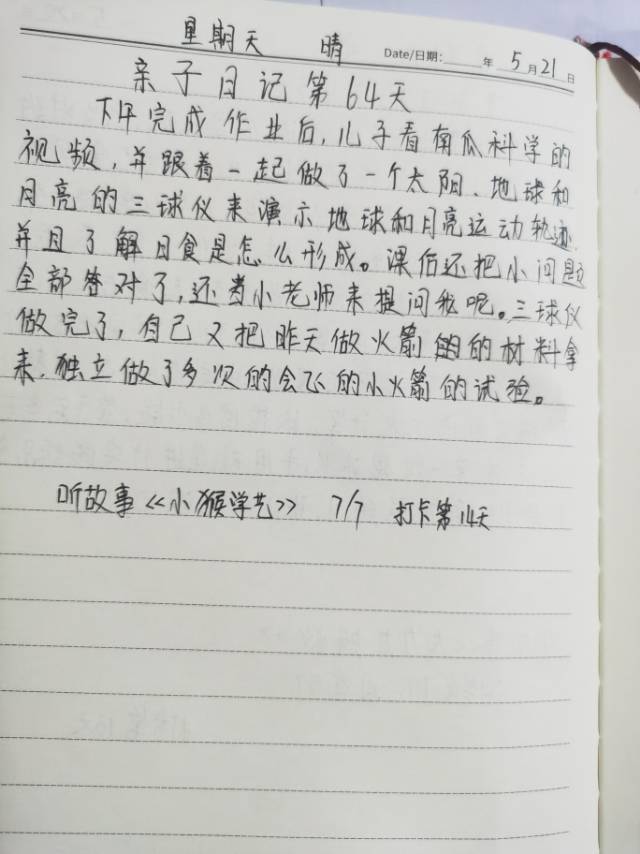 星期天 晴 Date/日期: 年 5月21日
亲子日记第64天
下午完成作业后,儿子看南瓜科学的
视频,并跟着一起做了一个太阳、地球和
月亮的三球仪来演示地球和月亮运动轨迹,
并且了解日食是怎么形成。课后还把小问题
全部答对了,还当小老师来提问我呢。三球仪
做完了,自己又把昨天做火箭的的材料拿
来,独立做了多次的会飞的小火箭的试验。
听故事《小猴学艺》 7/7 打卡第14天